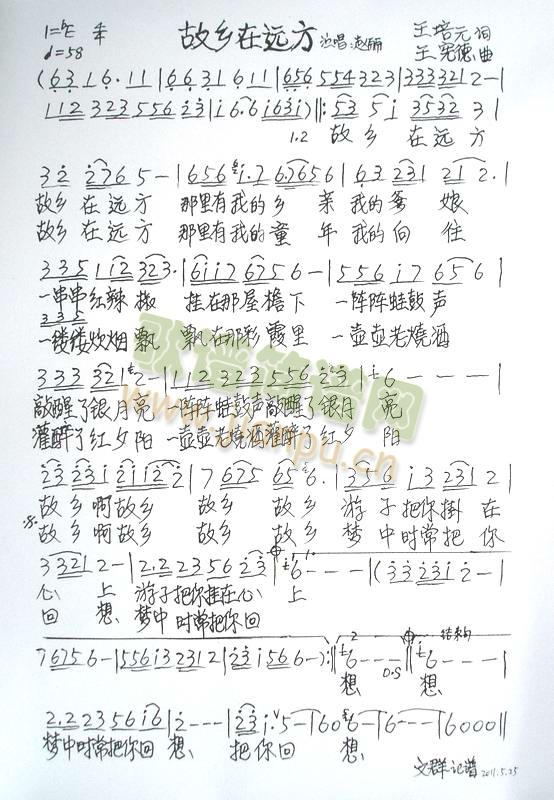 1=ᵇE 4/4 故乡在远方 演唱:赵丽 王培元 词
♩=58 王宪德 曲
(6 3 1 6· 1 1 | 6 6 3 1 6 1 1 | 6 5 6 5 5 4 3 2 3 | 3 3 3 3 2 1 2 - |
1 1 2 3 2 3 5 5 6 2 3 | i 6· 6 i 6 3 i) ‖: 5 3 5 i 3 5 3 2 3 |
1.2 故乡 在远方
3 2 2 7 6 5 - | 6 5 6 i· 7 6· 7 6 5 6 | 6 3 2 3 1 2 1 2· |
故乡 在远方 那里有我的乡 亲 我的爹 娘
故乡 在远方 那里有我的童 年 我的向 往
3 3 5 1 1 2 3 2 3· | 6 i i 7 6 7 5 6 - | 5 5 6 i 7 6 5 6 |
一串串红辣椒 挂在那屋檐下 一阵阵蛙鼓声
3 3 5
一缕缕炊烟飘 飘在那彩霞里 一壶壶老烧酒
3 3 3 3 2 1 2 - | 1 1 2 3 2 3 5 5 6 2 3 | 6 - - - |
敲醒了银月亮 一阵阵蛙鼓声敲醒了银月 亮
灌醉了红夕阳 一壶壶老烧酒灌醉了红夕 阳
2 3 2 3 i 2 i i 2 2 | 7 6 7 5 6 5 6· | 3 5 6 i 3 2 3 1 2 |
故乡啊故乡 故乡 故乡 游子把你掛在
故乡啊故乡 故乡 故乡 梦中时常把你
3 3 2 1 2 - | 2· 2 2 3 5 6 2 3 | 6 - - - | (3 3 2 3 i 2 - |
心 上 游子把你挂在心 上
回 想 梦中时常把你回
7 6 7 5 6 - | 5 5 6 i 3 2 3 1 2 | 2 3 i 5 6 6 - :‖ 2 6 - - - ‖ 结构 6 - - - |
想 D.S 想
2· 2 2 3 5 6 i 6 | 2 - - - | 2 3 i· 5 - | 6 0 6 - | 6 - - - | 6 0 0 0 ‖
梦中时常把你回 想 把你回 想
文群记谱 2011.5.25
歌谱简谱网
www.jianpu.cn